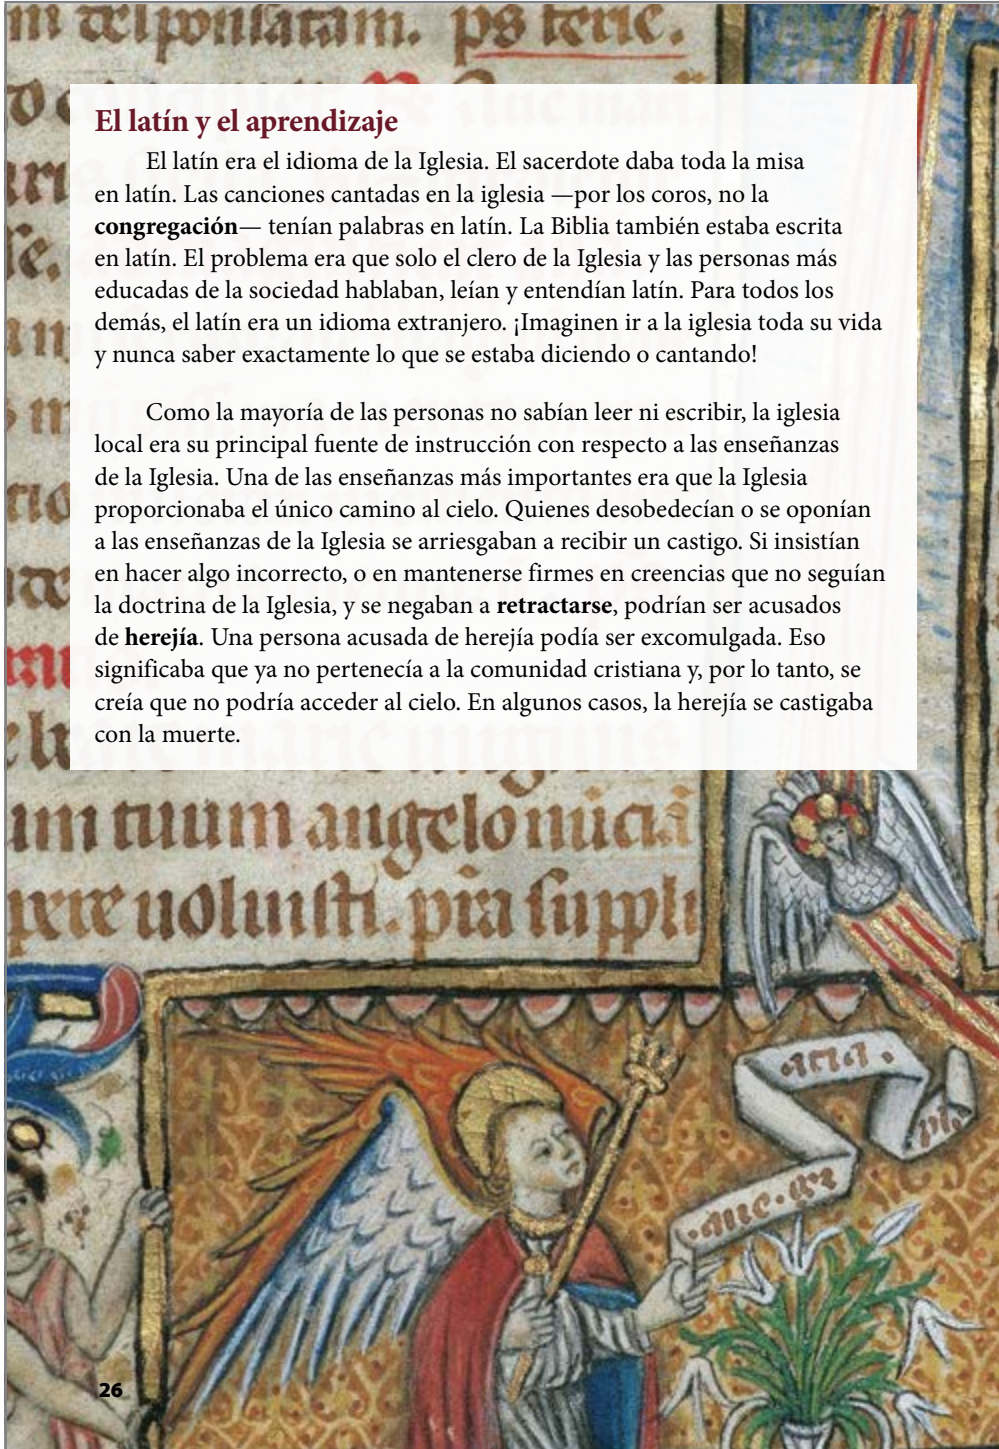 ps terie.
El latín y el aprendizaje
El latín era el idioma de la Iglesia. El sacerdote daba toda la misa
en latín. Las canciones cantadas en la iglesia —por los coros, no la
congregación— tenían palabras en latín. La Biblia también estaba escrita
en latín. El problema era que solo el clero de la Iglesia y las personas más
educadas de la sociedad hablaban, leían y entendían latín. Para todos los
demás, el latín era un idioma extranjero. ¡Imaginen ir a la iglesia toda su vida
y nunca saber exactamente lo que se estaba diciendo o cantando!
Como la mayoría de las personas no sabían leer ni escribir, la iglesia
local era su principal fuente de instrucción con respecto a las enseñanzas
de la Iglesia. Una de las enseñanzas más importantes era que la Iglesia
proporcionaba el único camino al cielo. Quienes desobedecían o se oponían
a las enseñanzas de la Iglesia se arriesgaban a recibir un castigo. Si insistían
en hacer algo incorrecto, o en mantenerse firmes en creencias que no seguían
la doctrina de la Iglesia, y se negaban a retractarse, podrían ser acusados
de herejía. Una persona acusada de herejía podía ser excomulgada. Eso
significaba que ya no pertenecía a la comunidad cristiana y, por lo tanto, se
creía que no podría acceder al cielo. En algunos casos, la herejía se castigaba
con la muerte.
um tuum angelo
uoluisti. pra suppli
26